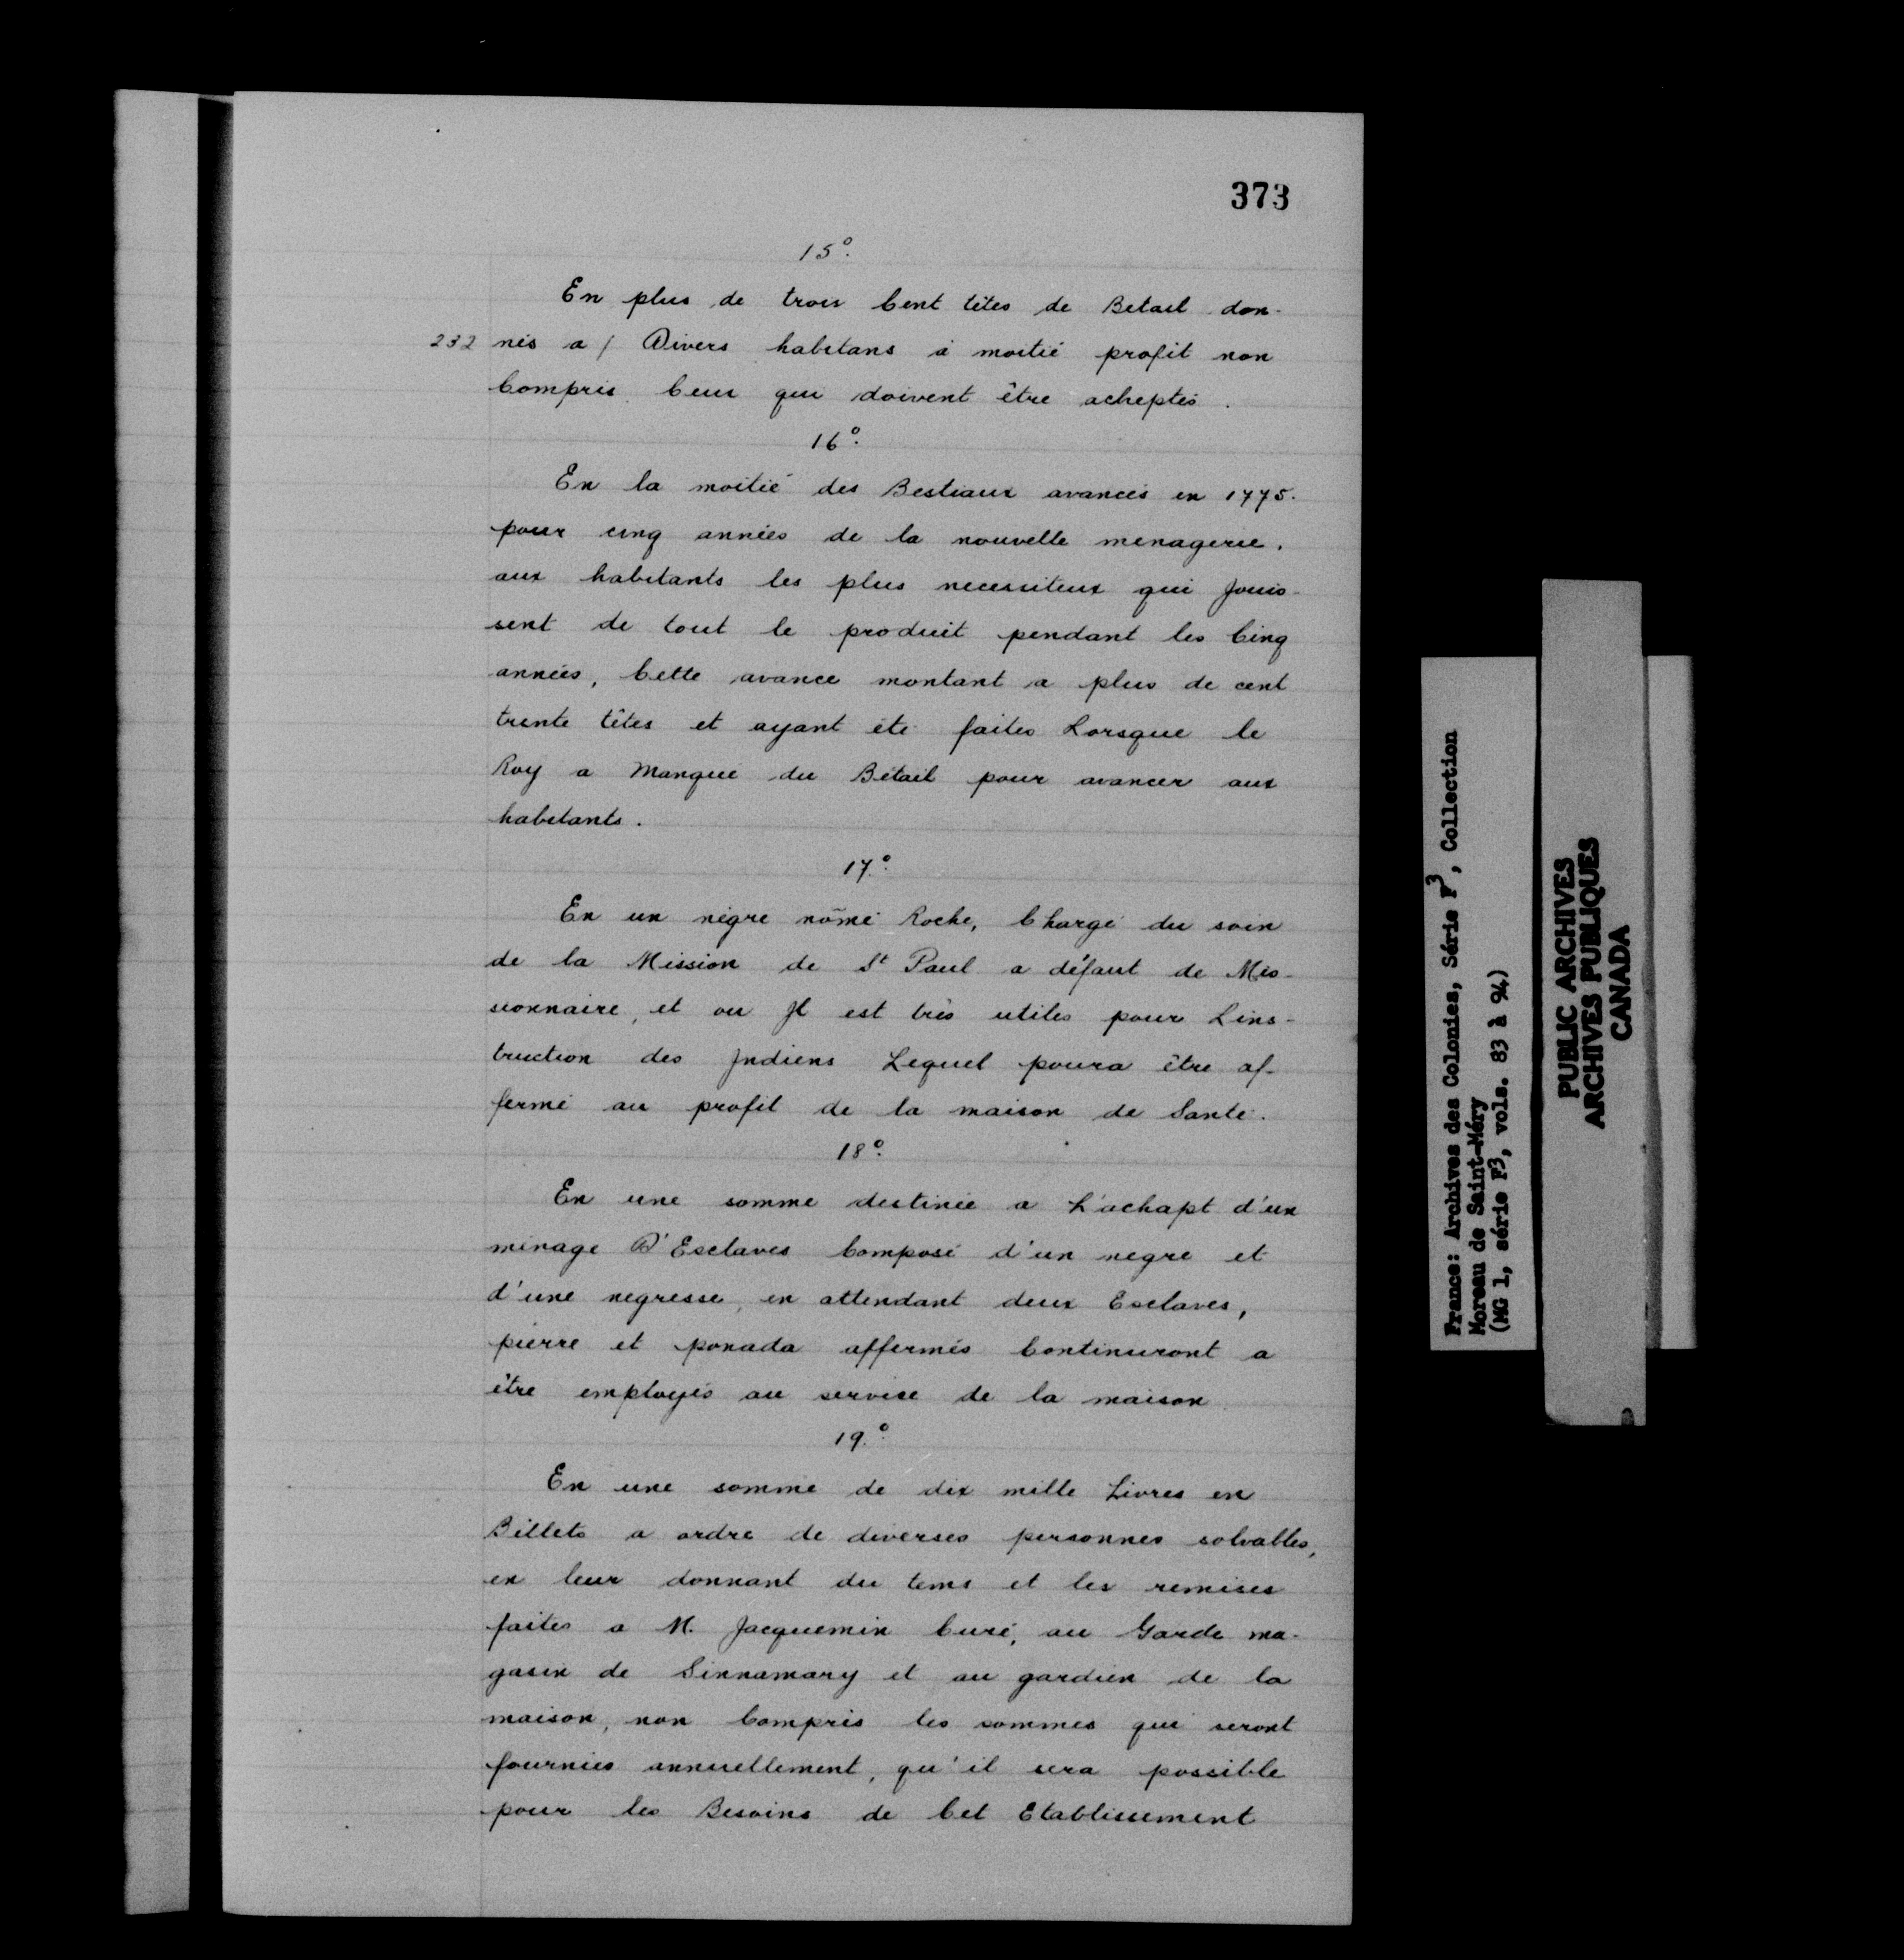 373
15º.
En plus de trois Cent têtes de Betail don-
232 nés a / Divers habitans à moitié profit non
Compris Ceux qui doivent être acheptés.
16º.
En la moitié des Bestiaux avancés en 1775.
pour cinq années de la nouvelle menagerie.
aux habitants les plus necessiteux qui Jouis-
sent de tout le produit pendant les Cinq
années, Cette avance montant a plus de cent
trente têtes et ayant été faites Lorsque le
Roy a Manqué du Bétail pour avancer aux
habitants.
17.º
En un nègre nõmé Roche, Chargé du soin
de la Mission de St Paul a défaut de Mis-
sionnaire, et ou Il est très utiles pour Lins-
truction des Indiens Lequel poura être af-
fermé au profit de la maison de Santé.
18º.
En une somme destinée a L'achapt d'un
ménage D'Esclaves Composé d'un negre et
d'une negresse, en attendant deux Esclaves,
pierre et ponada affermés Continuront a
être employés au service de la maison
19.º
En une somme de dix mille Livres en
Billets a ordre de diverses personnes solvables,
en leur donnant du tems et les remises
faites a M. Jacquemin Curé, au Garde ma-
gasin de Sinnamary et au gardien de la
maison, non Compris les sommes qui seront
fournies annuellement, qu'il sera possible
pour les Besoins de Cet Etablissement
France: Archives des Colonies, Série F3, Collection
Moreau de Saint-Méry
(MG 1, série F3, vols. 83 à 94)
PUBLIC ARCHIVES
ARCHIVES PUBLIQUES
CANADA